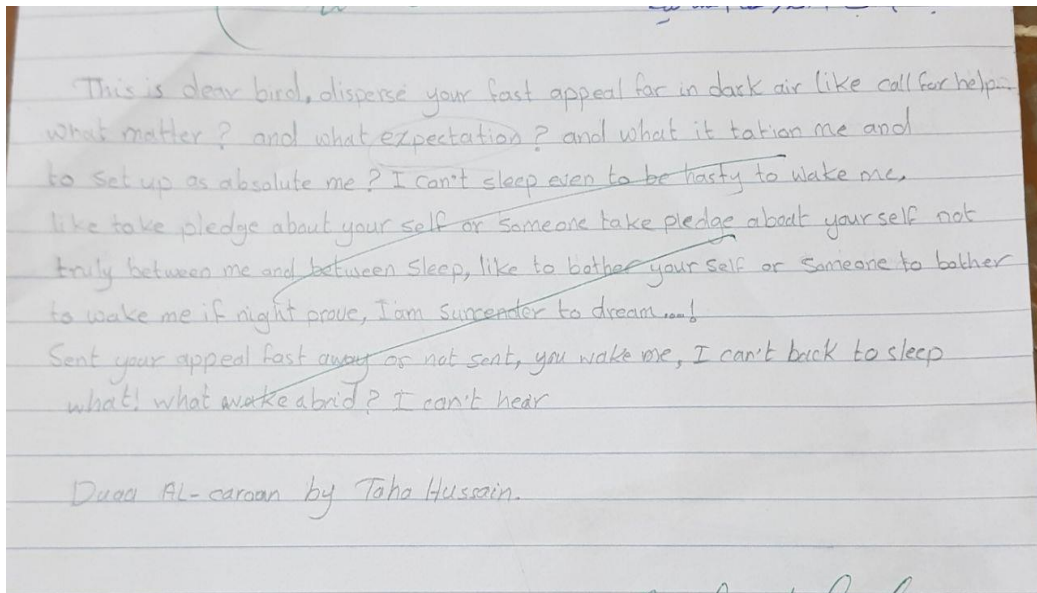 This is dear bird, disperse your fast appeal far in dark air like call for help...
what matter? and what expectation? and what it tation me and
to set up as absolute me? I can't sleep even to be hasty to wake me,
like take pledge about your self or someone take pledge about yourself not
truly between me and between sleep, like to bother your self or someone to bother
to wake me if night prove, I am surrender to dream....!
Sent your appeal fast away or not sent, you wake me, I can't back to sleep
what! what awake a brid? I can't hear
Duaa AL-caroan by Taha Hussain.